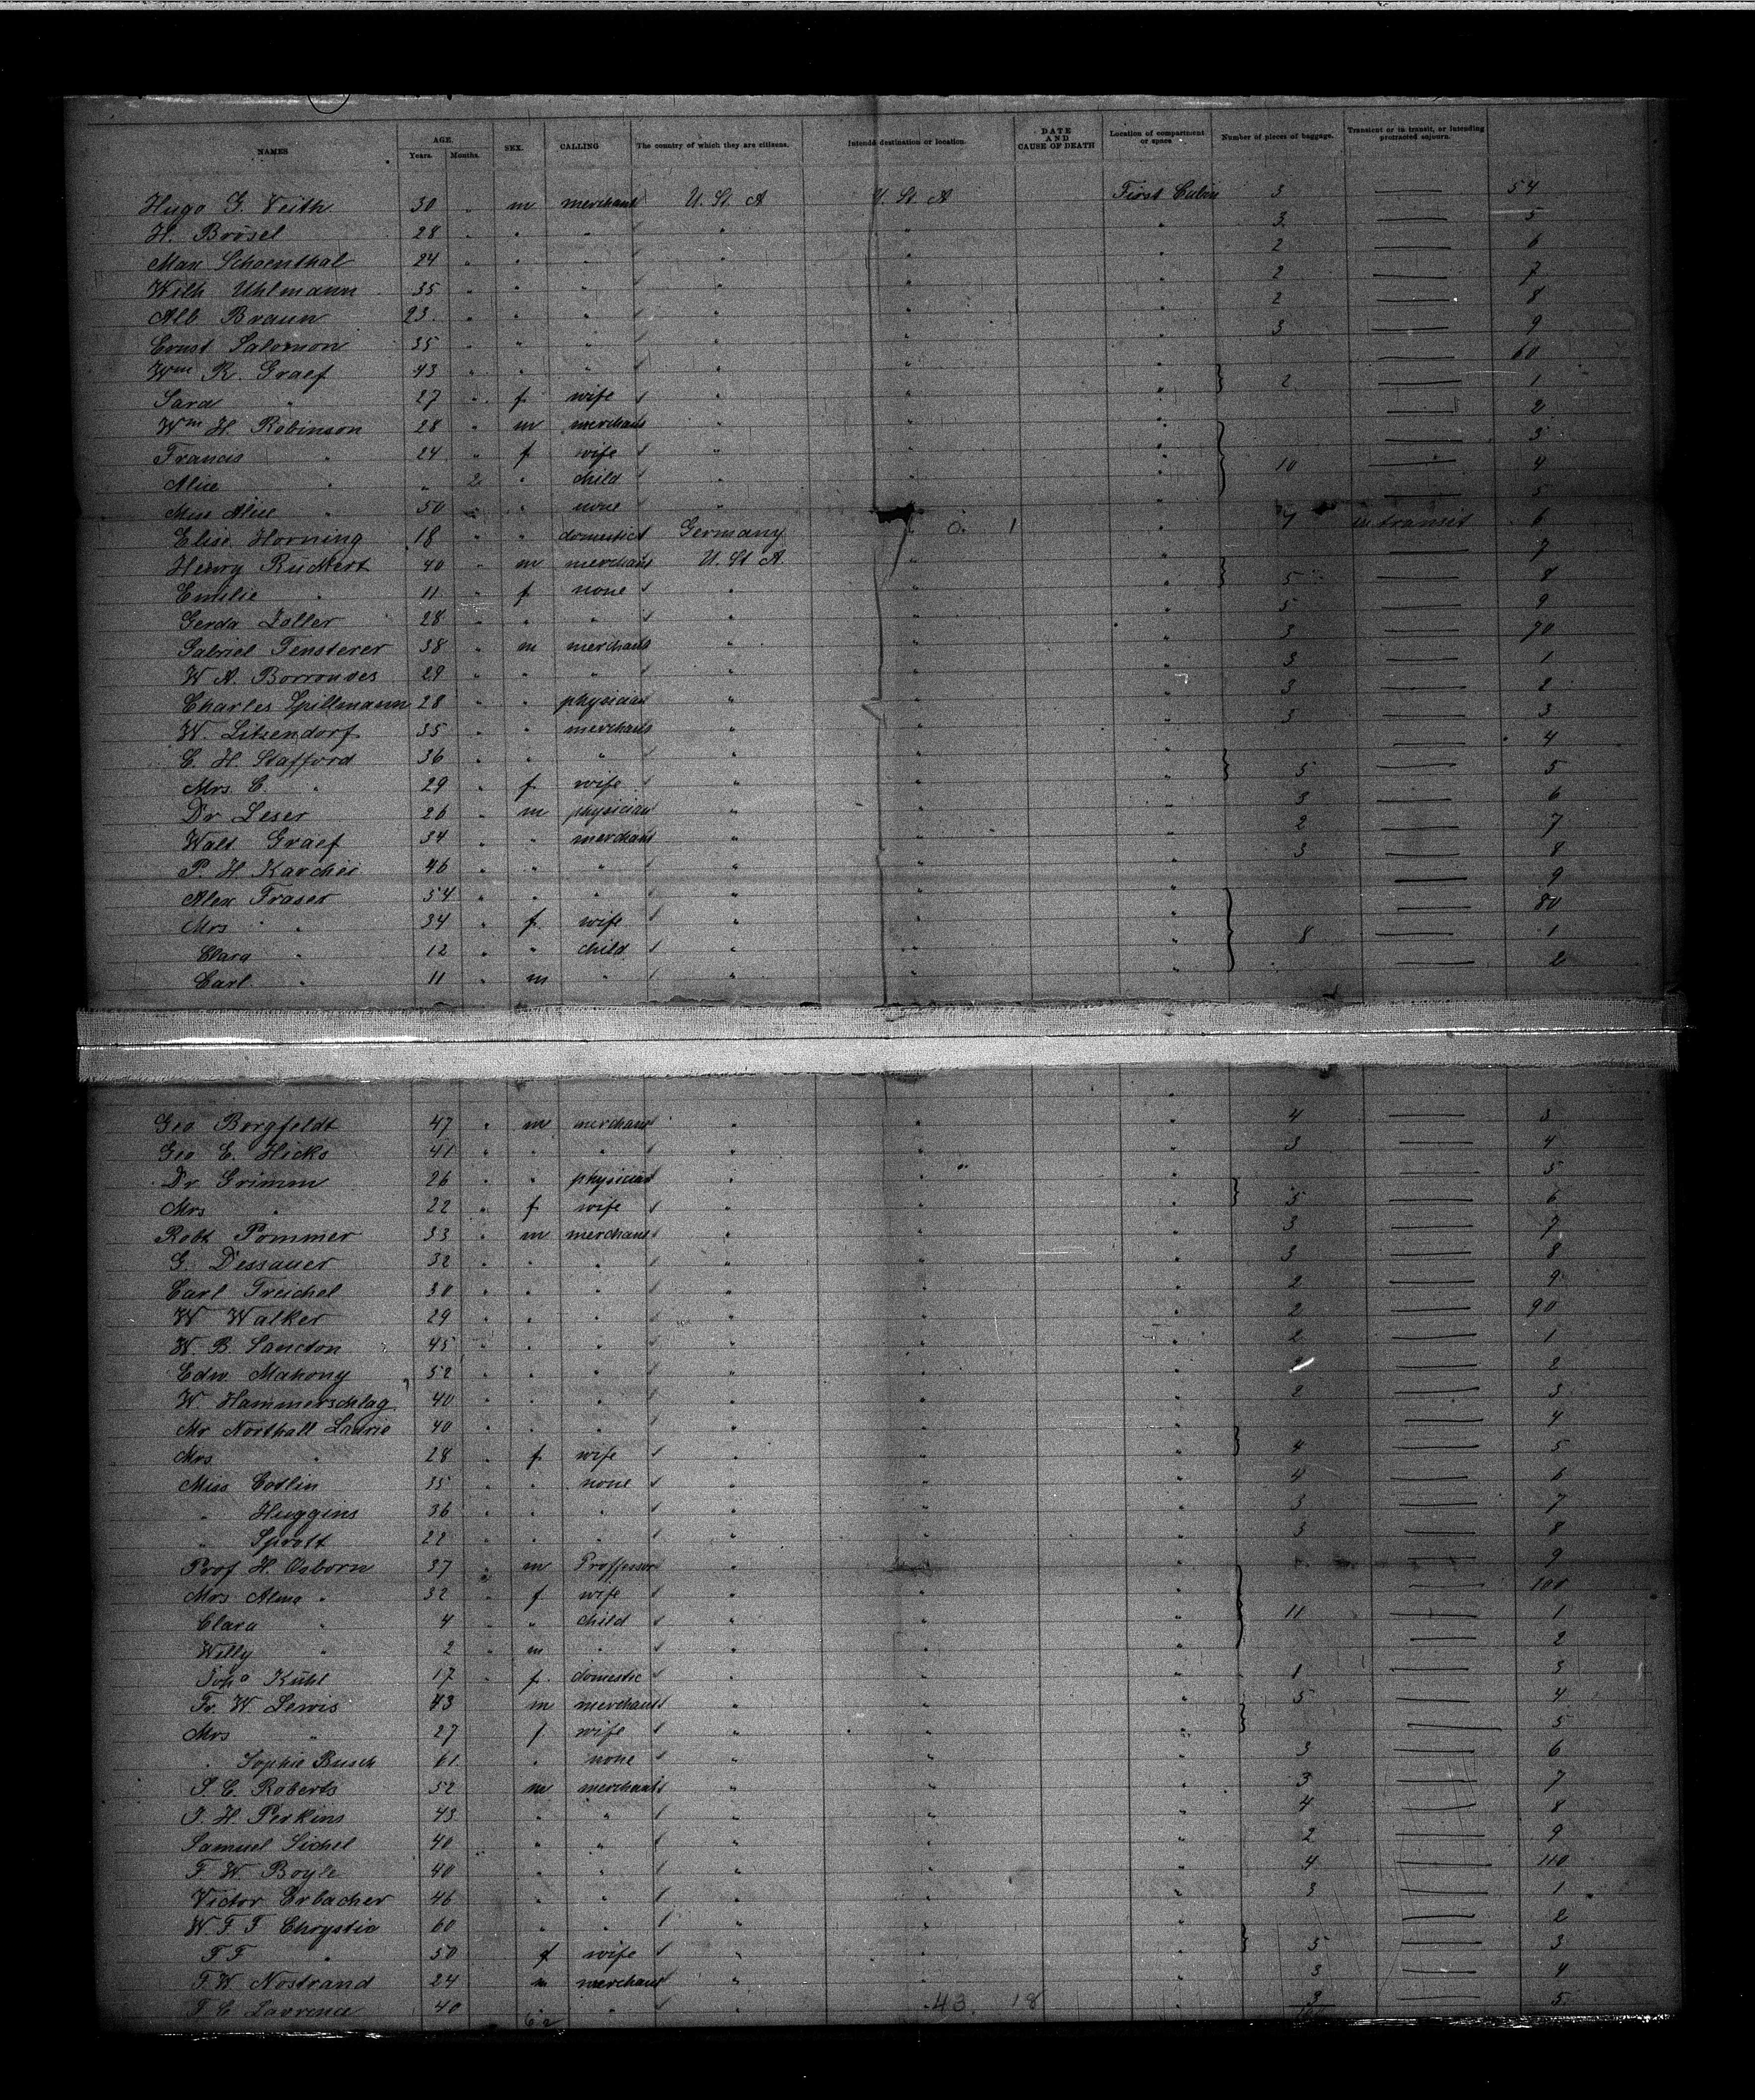 NAMES AGE, Years. Months. SEX. CALLING The country of which they are citizens. Intended destination or location. DATE AND CAUSE OF DEATH Location of compartment or space Number of pieces of baggage. Transient or in transit, or intending protracted sojourn.
Hugo G. Veith 30 " m merchant U. St. A U. St. A First Cabin 3 — 54
H. Brösel 28 " " " " " " 3 — 5
Max Schoenthal 24 " " " " " " 2 — 6
Wilh Uhlmann 35 " " " " " " 2 — 7
Alb Braun 23 " " " " " " 2 — 8
Const Salomon 35 " " " " " " 3 — 9
Wm R. Graef 43 " " " " " " — 60
Sara " 27 " f wife " " " 2 — 1
Wm H. Robinson 28 " m merchant " " " — 2
Francis " 24 " f wife " " " — 3
Alice " " 2 " child " " " 10 — 4
Miss Alice " 50 " " none " " " — 5
Elise Horning 18 " " domestic Germany " 0. 1 " 7 in transit 6
Henry Rückert 40 " m merchant U. St A. " " — 7
Emilie " 11 " f none " " " 5 — 8
Gerda Zoller 28 " " " " " " 5 — 9
Gabriel Fensterer 38 " m merchant " " " 3 — 70
W A. 29 " " " " " " 3 — 1
Charles Spillmann 28 " " physician " " " 3 — 2
W. Litzendorf 35 " " merchant " " " 3 — 3
C. H. Stafford 36 " " " " " " — 4
Mrs. C. " 29 " f wife " " " 5 — 5
Dr Leser 26 " m physician " " " 3 — 6
Walt Graef 34 " " merchant " " " 2 — 7
P. H. Karcher 46 " " " " " " 3 — 8
Alex Fraser 54 " " " " " " — 9
Mrs " 34 " f wife " " " — 80
Clara " 12 " " child " " " 8 — 1
Carl " 11 " m " " " " — 2
Geo Borgfeldt 47 " m merchant " " " 4 — 3
Geo E. Hicks 41 " " " " " " 3 — 4
Dr Grimm 26 " " physician " " " — 5
Mrs " 22 " f wife " " " 5 — 6
Robt Pommer 33 " m merchant " " " 3 — 7
G. Dessauer 32 " " " " " " 3 — 8
Carl Treichel 30 " " " " " " 2 — 9
W Walker 29 " " " " " " 2 — 90
W. B. Sancton 45 " " " " " " 2 — 1
Edw. Mahony 52 " " " " " " — 2
W. Hammerschlag 40 " " " " " " 2 — 3
Mr Northall Laurie 40 " " " " " " — 4
Mrs " 28 " f wife " " " 4 — 5
Miss Codlin 35 " " none " " " 4 — 6
" Huggins 36 " " " " " " 3 — 7
" Sprott 22 " " " " " " 3 — 8
Prof. H. Osborn 37 " m Proffessor " " " 9
Mrs Alma " 32 " f wife " " " — 100
Clara " 4 " " child " " " 11 — 1
Willy " 2 " m " " " " — 2
Kühl 17 " f domestic " " " 1 — 3
Fr. W. Lewis 43 m merchant " " " 5 — 4
Mrs " 27 f wife " " " — 5
" Sophie Busch 61 " none " " " 3 — 6
S. C. Roberts 52 m merchant " " " 3 — 7
J. H. Perkins 43 " " " " " 4 — 8
Samuel Sichel 40 " " " " " 2 — 9
F. W. Boyle 40 " " " " " 4 — 110
Victor Erbacher 46 " " " " " 3 — 1
W. F. F Chrystie 60 " " " " " — 2
F F " 50 f wife " " " 5 — 3
F. W Nostrand 24 m merchant " " " 3 — 4
F. C Lawrence 40 " " " " 43 18 " 3 — 5
62